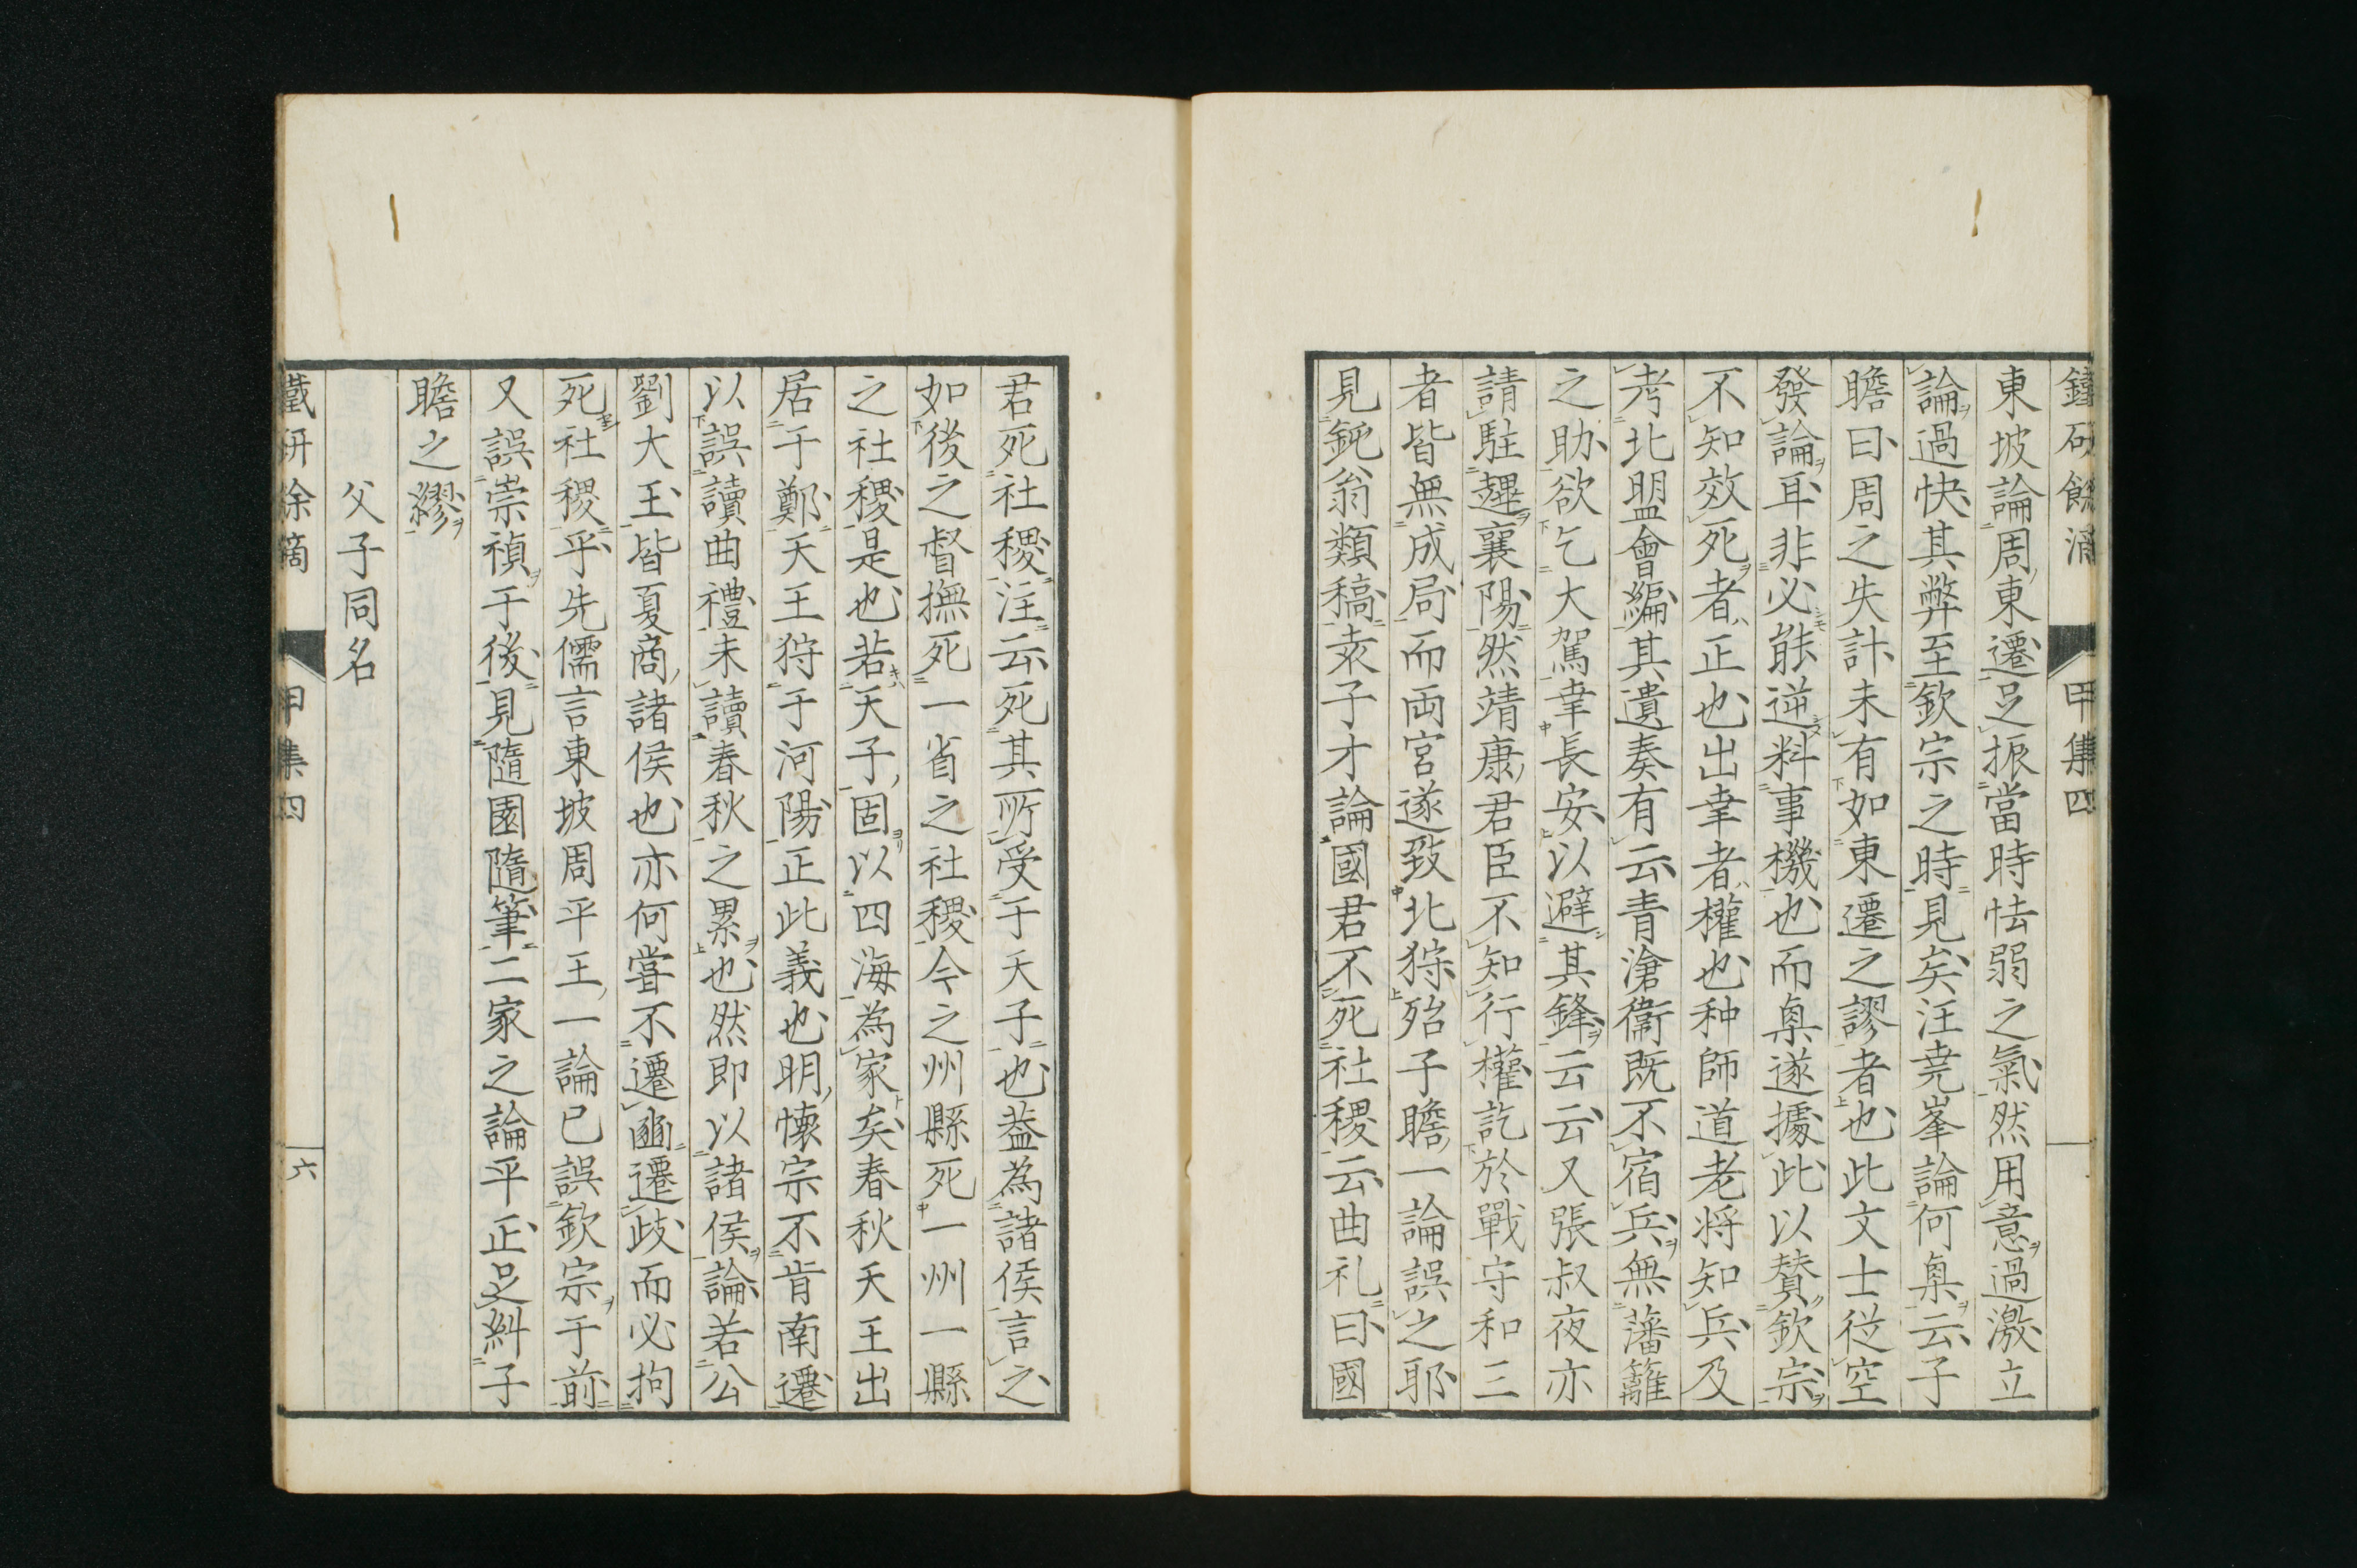 東坡論周東遷足振當時怯弱之氣然用意過激立
論過快其弊至欽宗之時見矣汪堯峯論何㮚云子
瞻曰周之失計未有如東遷之謬者也此文士從空
發論耳非必能逆料事機也而㮚遂據此以贊欽宗
不知效死者正也出幸者權也种師道老将知兵及
考北盟會編其遺奏有云青滄衛既不宿兵無藩籬
之助欲乞大駕幸長安以避其鋒云云又張叔夜亦
請駐蹕襄陽然靖康君臣不知行權訖於戰守和三
者皆無成局而両宮遂致北狩殆子瞻一論誤之耶
見鈍翁類稿袁子才論國君不死社稷云曲礼曰國
君死社稷注云死其所受于天子也葢為諸侯言之
如後之督撫死一省之社稷今之州縣死一州一縣
之社稷是也若天子固以四海為家矣春秋天王出
居于鄭天王狩于河陽正此義也明懷宗不肯南遷
以誤讀曲禮未讀春秋之累也然即以諸侯論若公
劉大王皆夏商諸侯也亦何嘗不遷豳遷岐而必拘
死社稷乎先儒言東坡周平王一論已誤欽宗于前
又誤崇禎于後見隨園隨筆二家之論平正足糾子
瞻之繆
父子同名
鐵研餘滴 甲集四 六